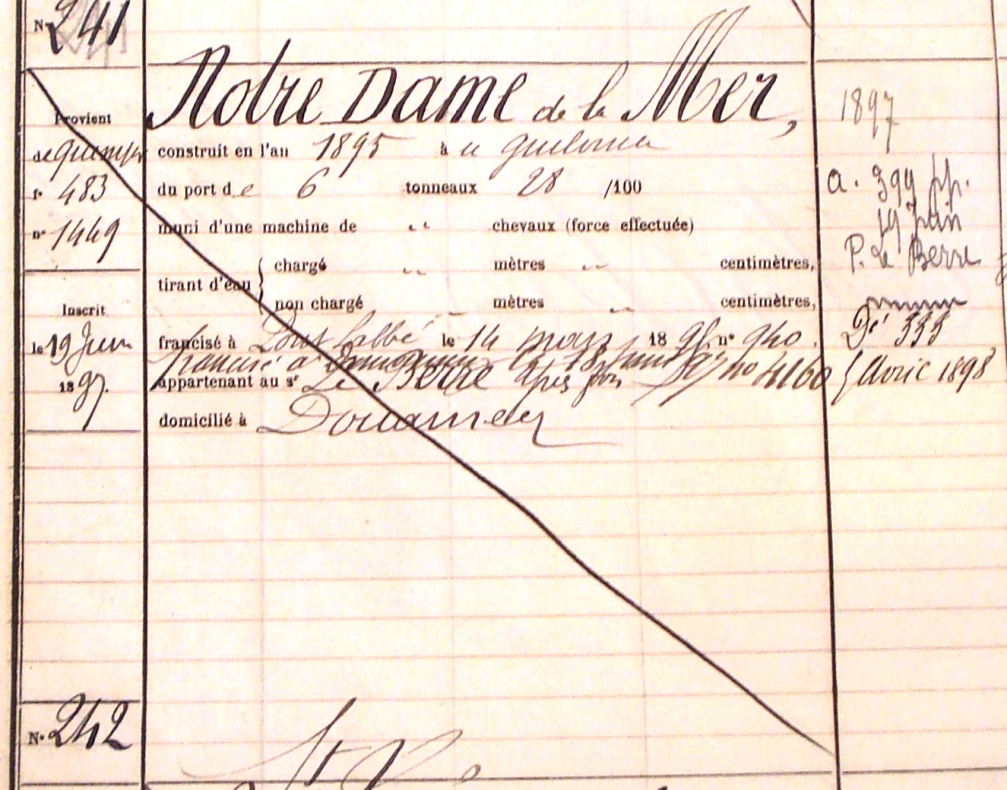 N° 241
Notre Dame de la Mer,
Provient
de quimper
f° 483
n° 1449
construit en l'an 1895 à guilvinec
du port de 6 tonneaux 28 /100
muni d'une machine de " chevaux (force effectuée)
tirant d'eau
chargé " mètres " centimètres,
non chargé " mètres " centimètres,
Inscrit
le 19 Juin
1897.
francisé à Pont l'abbé le 14 mars 18 n° 940.
francisé à le 18 Juin n° 4160
appartenant au sr Le Berre
domicilié à Douarnenez
1897
a. 399 pp.
19 juin
P. Le Berre
Dé 333
Avril 1898
N° 242
St